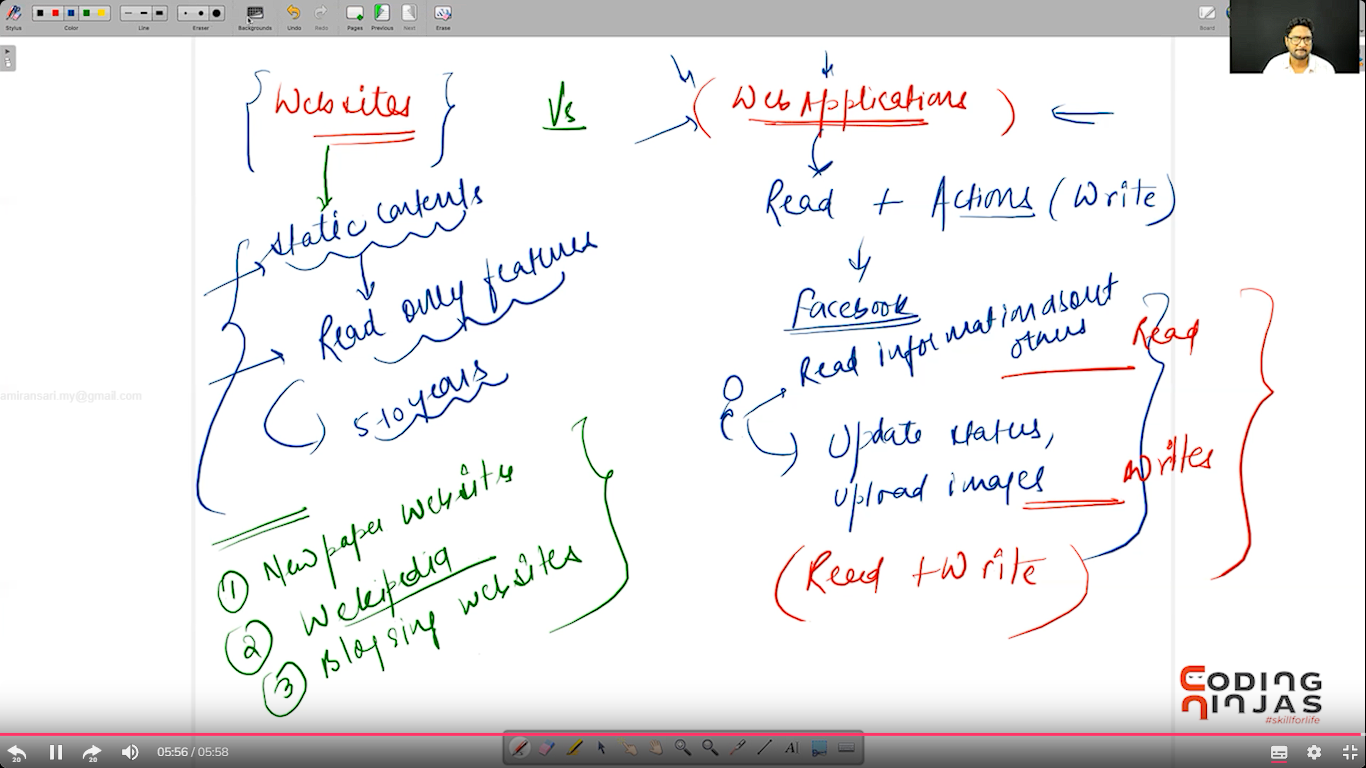 Stylus
Color
Line
Eraser
Backgrounds
Undo
Redo
Pages
Previous
Next
Erase
Board
Websites
Vs
(Web Applications)
static contents
Read only features
5-10 years
① Newpaper websites
② Wekipedia
③ Blogsing websites
Read + Actions (Write)
Facebook
Read information about
others
Read
Update status,
upload images
Writes
(Read + Write)
amiransari.my@gmail.com
CODING
NINJAS
#skillforlife
20
20
05:56 / 05:58